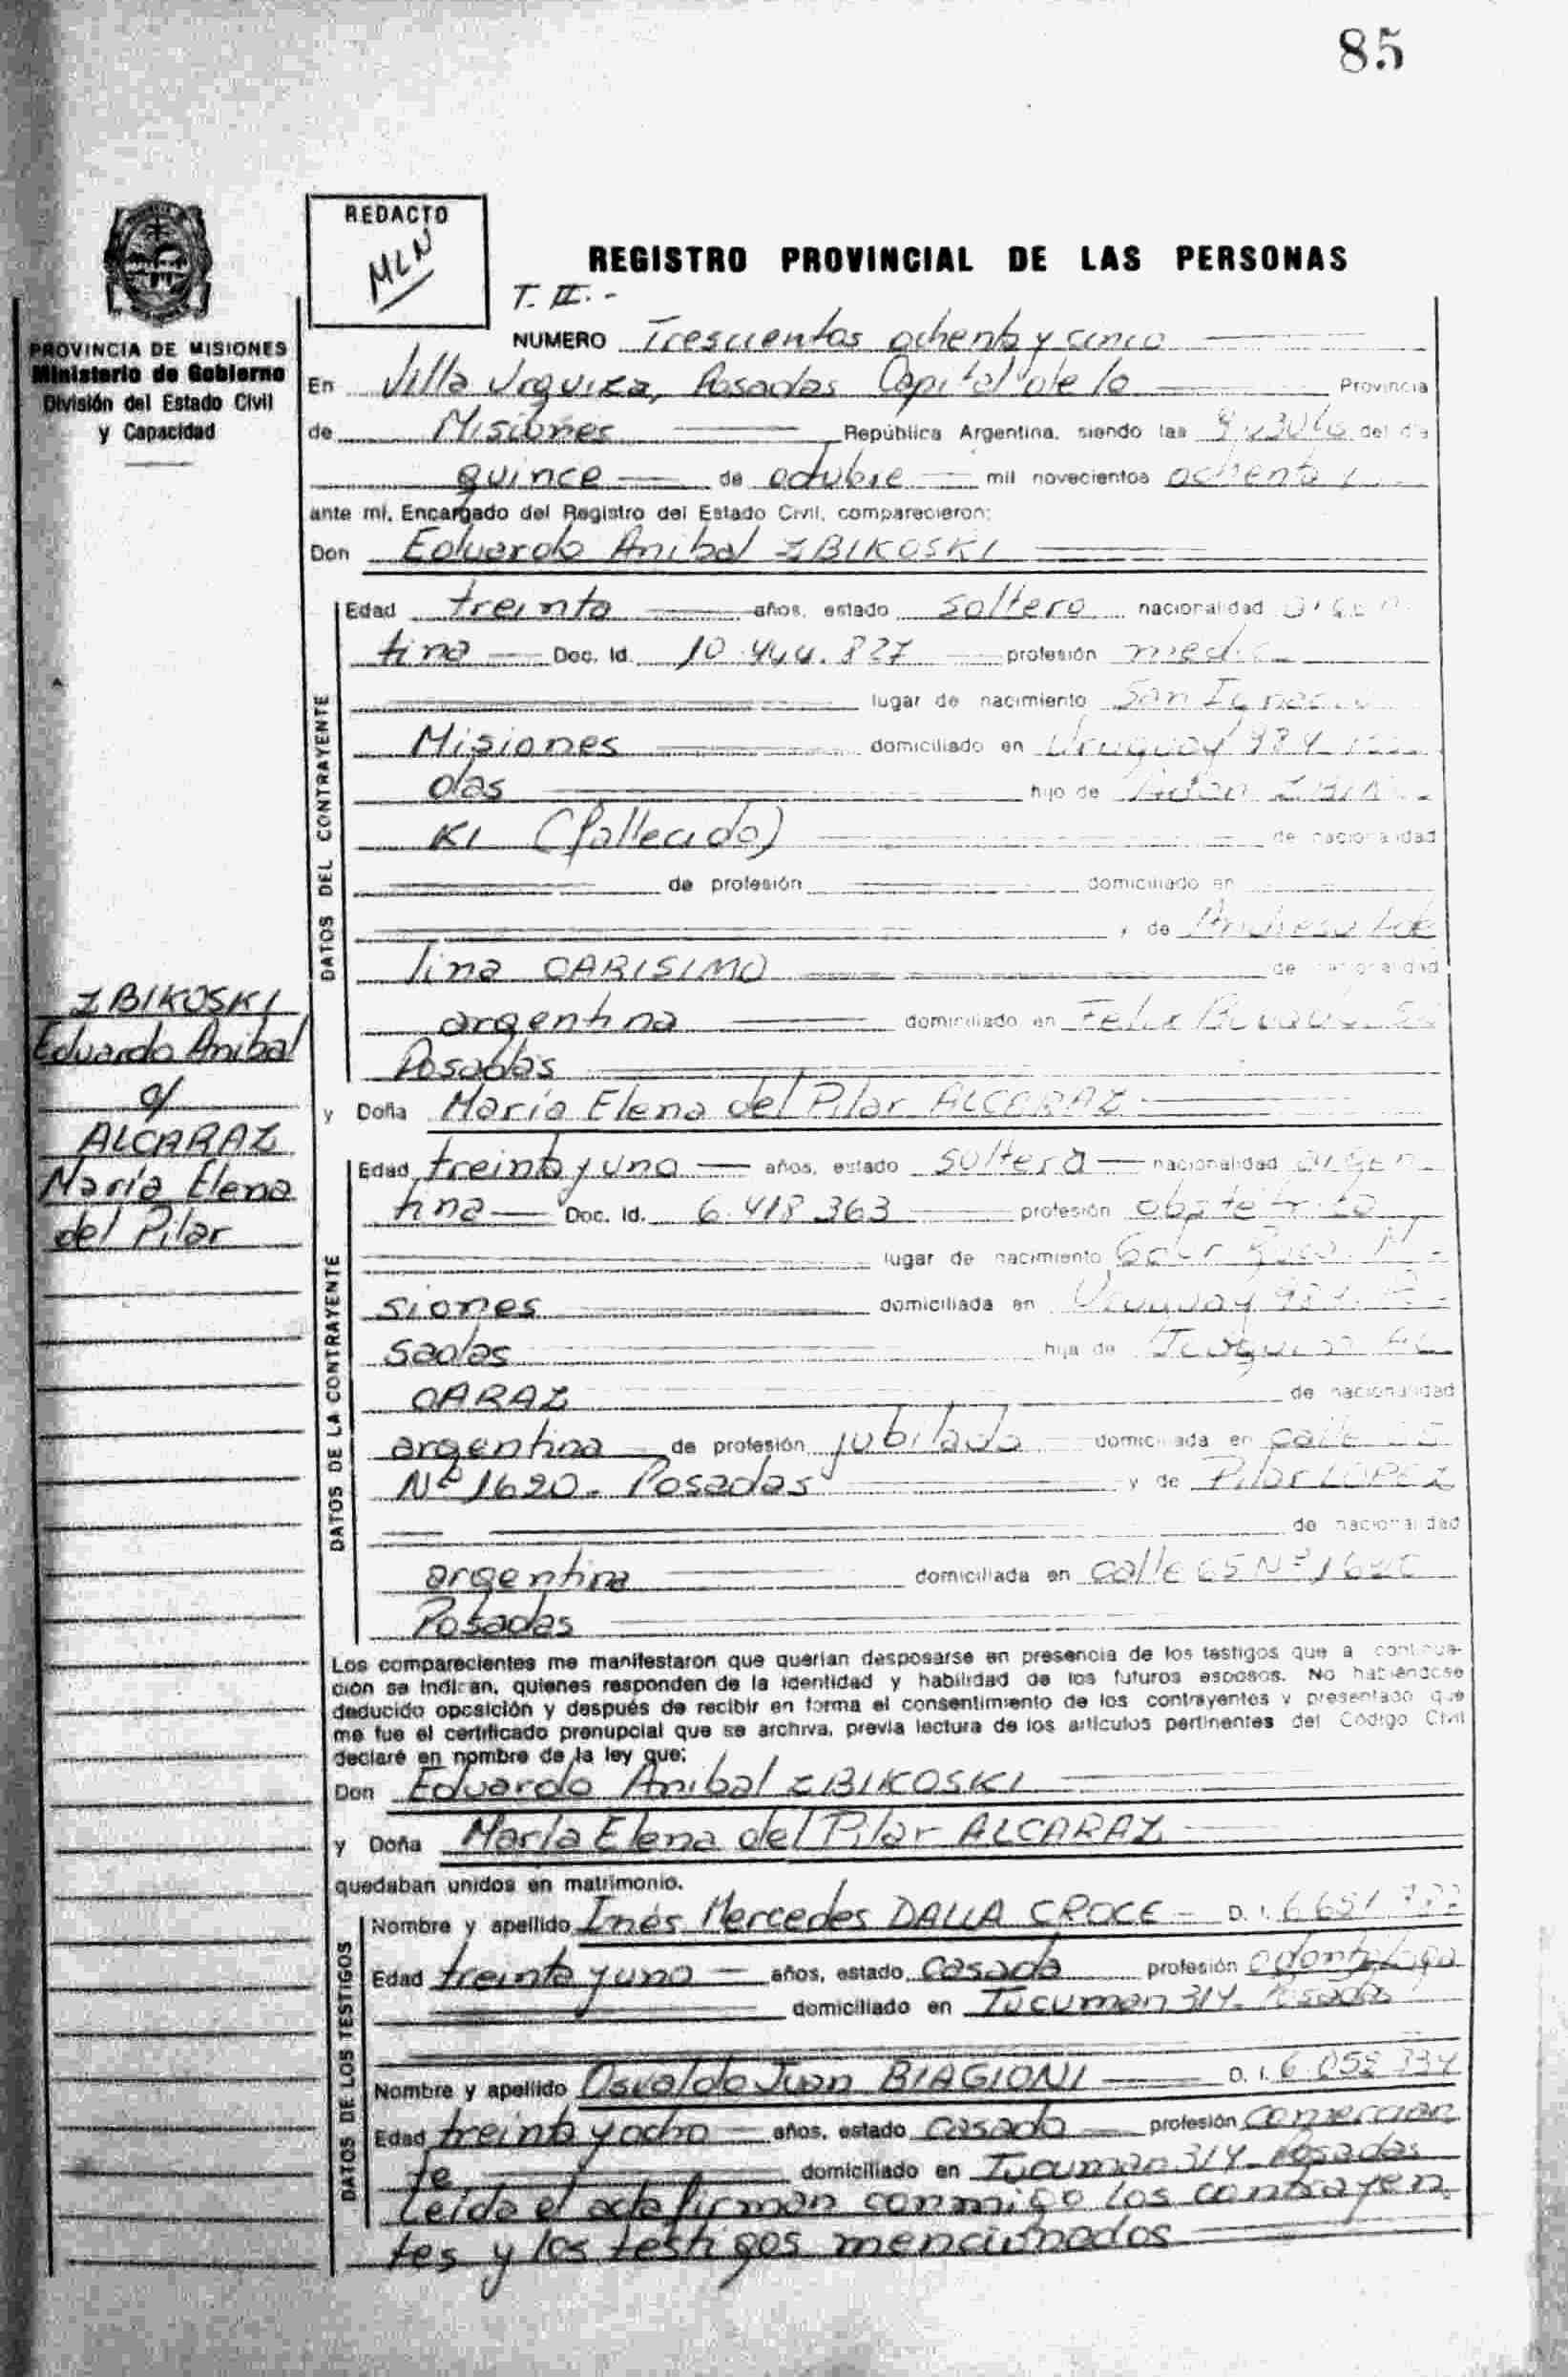 85
REDACTO
MLN
REGISTRO PROVINCIAL DE LAS PERSONAS
T. II.-
PROVINCIA DE MISIONES
Ministerio de Gobierno
División del Estado Civil
y Capacidad
NUMERO Trescientos ochenta y cinco
En Villa Urquiza, Posadas Capital de la Provincia
de Misiones República Argentina, siendo las del día
quince de octubre mil novecientos ochenta y
ante mí, Encargado del Registro del Estado Civil, comparecieron:
Don Eduardo Anibal ZBIKOSKI
DATOS DEL CONTRAYENTE
Edad treinta años, estado soltero nacionalidad argen
tina Doc. Id. 10.444.827 profesión medic
lugar de nacimiento San Ignacio
Misiones domiciliado en Uruguay 984
das hijo de ZBIK
KI (fallecido) de nacionalidad
de profesión domiciliado en
y de
lina CARISIMO de nacionalidad
argentina domiciliado en Felix
Posadas
y Doña María Elena del Pilar ALCARAZ
DATOS DE LA CONTRAYENTE
Edad treinta y uno años, estado soltera nacionalidad argen
tina Doc. Id. 6.418.363 profesión obstétrica
lugar de nacimiento Gdor Roca
siones domiciliada en Uruguay
sadas hija de Joaquin AL
CARAZ de nacionalidad
argentina de profesión jubilado domiciliada en calle
Nº 1620. Posadas y de Pilar LOPEZ
de nacionalidad
argentina domiciliada en calle 65 Nº
Posadas
Los comparecientes me manifestaron que querían desposarse en presencia de los testigos que a continua-
ción se indican, quienes responden de la identidad y habilidad de los futuros esposos. No habiéndose
deducido oposición y después de recibir en forma el consentimiento de los contrayentes y presentado que
me fue el certificado prenupcial que se archiva, previa lectura de los artículos pertinentes del Código Civil
declaré en nombre de la ley que:
Don Eduardo Anibal ZBIKOSKI
y Doña María Elena del Pilar ALCARAZ
quedaban unidos en matrimonio.
DATOS DE LOS TESTIGOS
Nombre y apellido Inés Mercedes DALLA CROCE D. I.
Edad treinta y uno años, estado casada profesión odontóloga
domiciliado en Tucuman 314. Posadas
Nombre y apellido Osvaldo Juan BIAGIONI D. I. 6.058.334
Edad treinta y ocho años, estado casado profesión comercian
te domiciliado en Tucuman 314. Posadas
Leída el acta firman conmigo los contrayen
tes y los testigos mencionados
ZBIKOSKI
Eduardo Anibal
c/
ALCARAZ
María Elena
del Pilar